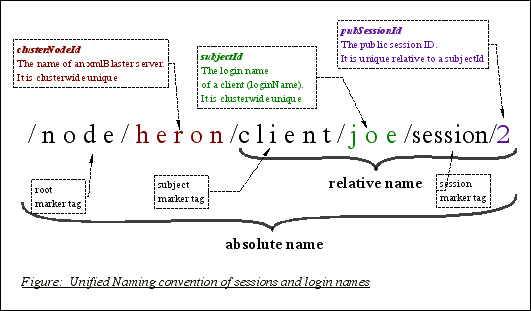 clusterNodeId
The name of an xmlBlaster server.
It is clusterwide unique
subjectId
The login name
of a client (loginName).
It is clusterwide unique
pubSessionId
The public session ID.
It is unique relative to a subjectId
/node/heron/client/joe/session/2
root
marker tag
subject
marker tag
relative name
session
marker tag
absolute name
Figure: Unified Naming convention of sessions and login names